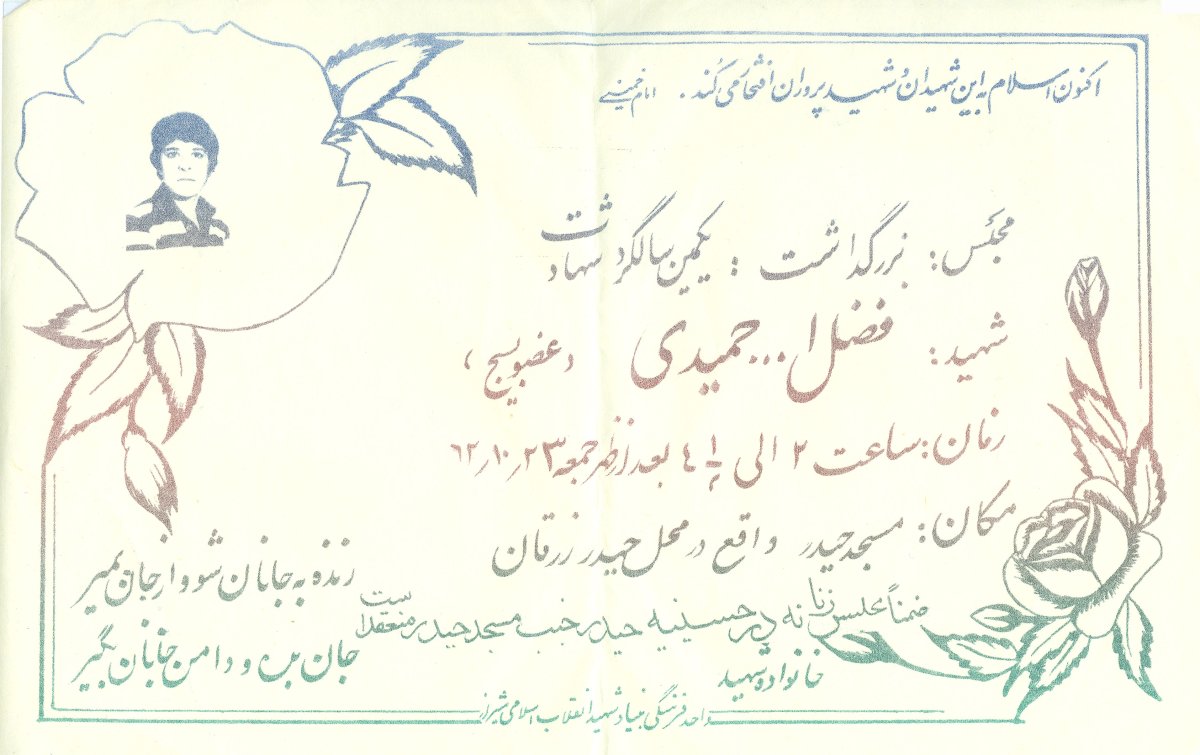 اکنون اسلام به این شهیدان و شهید پروران افتخار می کند. امام خمینی
مجلس: بزرگداشت : یکمین سالگرد شهادت
شهید: فضل ا... حمیدی (عضو بسیج)
زمان: ساعت ۲ الی ۱/۲ ۴ بعد از ظهر جمعه ۶۲٫۱۰٫۲۳
مکان: مسجد حیدر واقع در محل حیدر زرقان
ضمناً مجلس زنانه در حسینیه حیدر جنب مسجد حیدر منعقد است
خانواده شهید
زنده به جانان شو و از جان بمیر
جان بده و دامن جانان بگیر
واحد فرهنگی بنیاد شهید انقلاب اسلامی شیراز